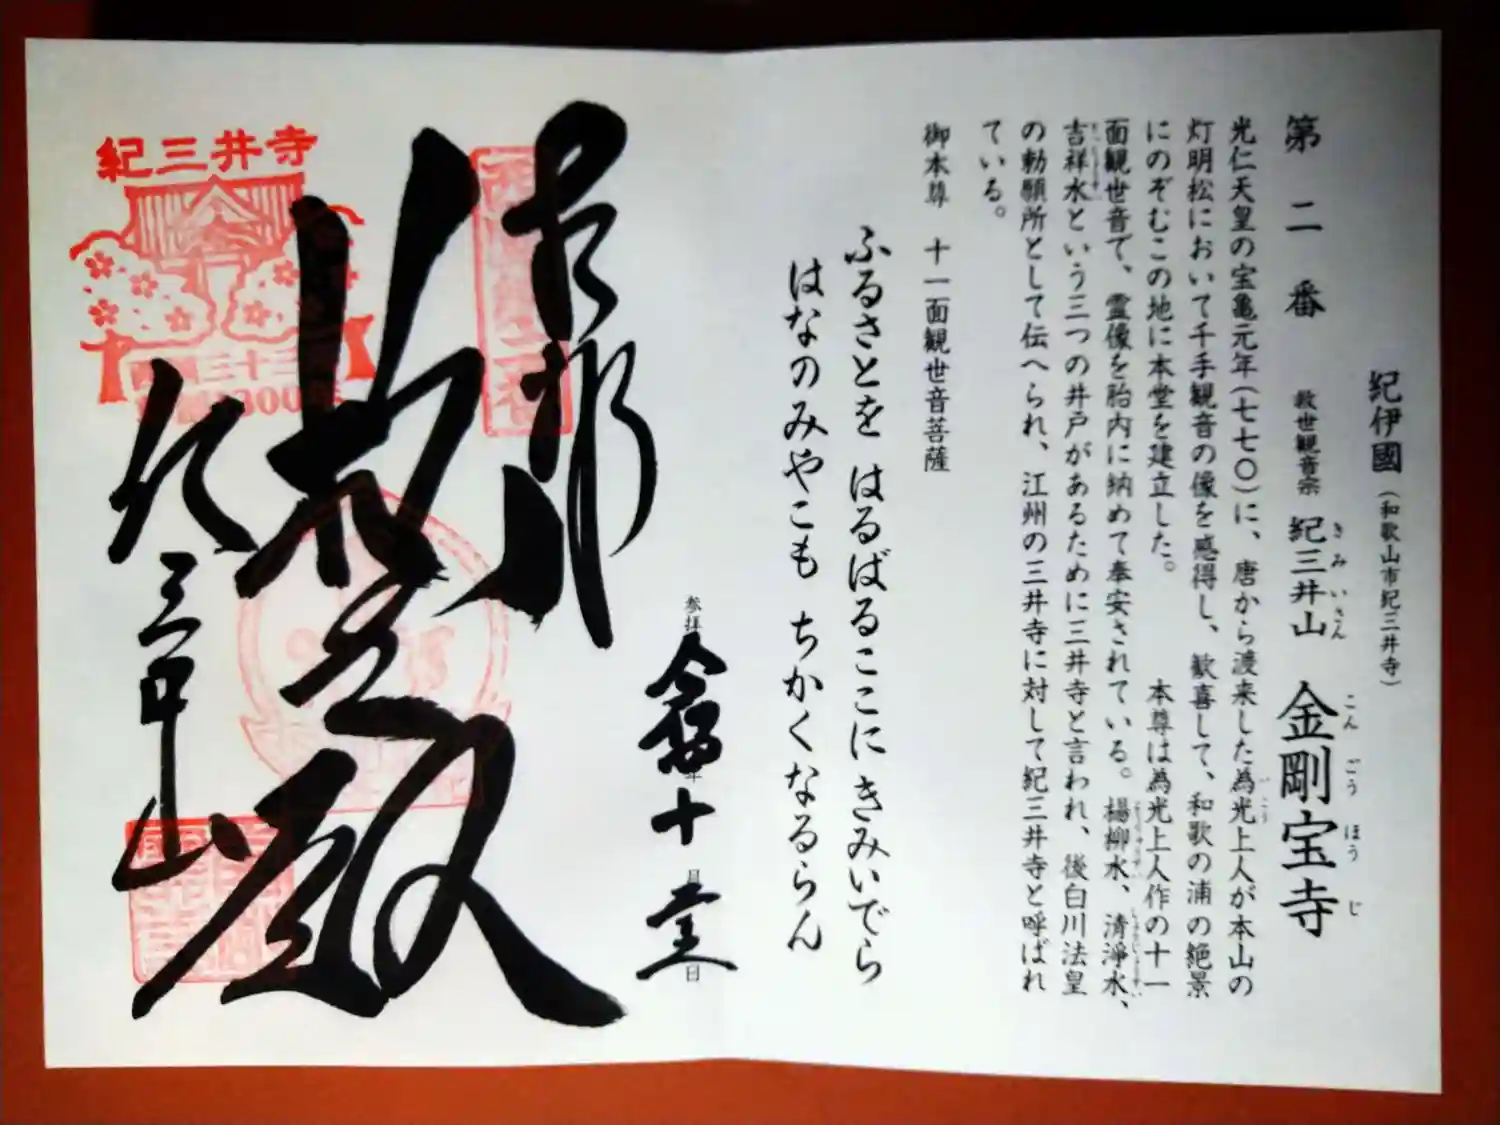 紀伊國(和歌山市紀三井寺)
第二番 救世観音宗 紀三井山 金剛宝寺
きみいさん こんごうほうじ
光仁天皇の宝亀元年(七七〇)に、唐から渡来した為光上人が本山の
灯明松において千手観音の像を感得し、歓喜して、和歌の浦の絶景
にのぞむこの地に本堂を建立した。 本尊は為光上人作の十一
面観世音で、霊像を胎内に納めて奉安されている。楊柳水、清浄水、
吉祥水という三つの井戸があるために三井寺と言われ、後白川法皇
の勅願所として伝へられ、江州の三井寺に対して紀三井寺と呼ばれ
ている。
御本尊 十一面観世音菩薩
ふるさとを はるばるここにきみいでら
はなのみやこも ちかくなるらん
参拝 令和 年 十 月 日
奉拝
救世殿
紀三井山
紀三井寺